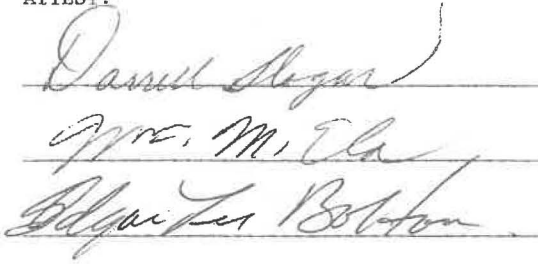 ATTEST:
Darrell Slogar
Wm. M. Ela
Edgar Lee Bolton